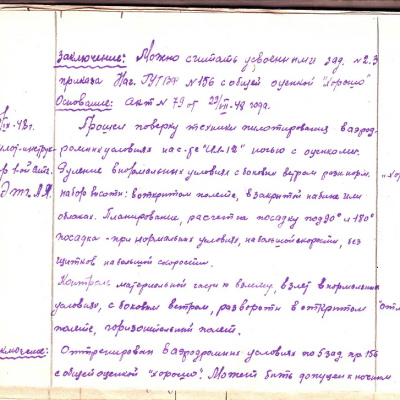 Заключение: Можно считать усвоенными зад. №2.3
приказа Нач. ГУГВФ №156 с общей оценкой "хорошо"
Основание: акт №79 от 29/VII-48 года.
Прошел поверку техники пилотирования в аэрод-
ромных условиях на с-те "Ил-12" ночью с оценками:
Руление в нормальных условиях с боковым ветром
набор высоты: в открытом полете, в закрытой кабине или
облаках. Планирование, расчет на посадку под 90° и 180°
посадка - при нормальных условиях, на большой скорости, без
щитков на большой скорости.
Контроль материальной части к полету, взлет в нормальных
условиях, с боковым ветром, развороты в открытом
полете, горизонтальный полет.
Оттренирован в аэродромных условиях по 5 зад. пр. 156
с общей оценкой "хорошо". Может быть допущен к ночным